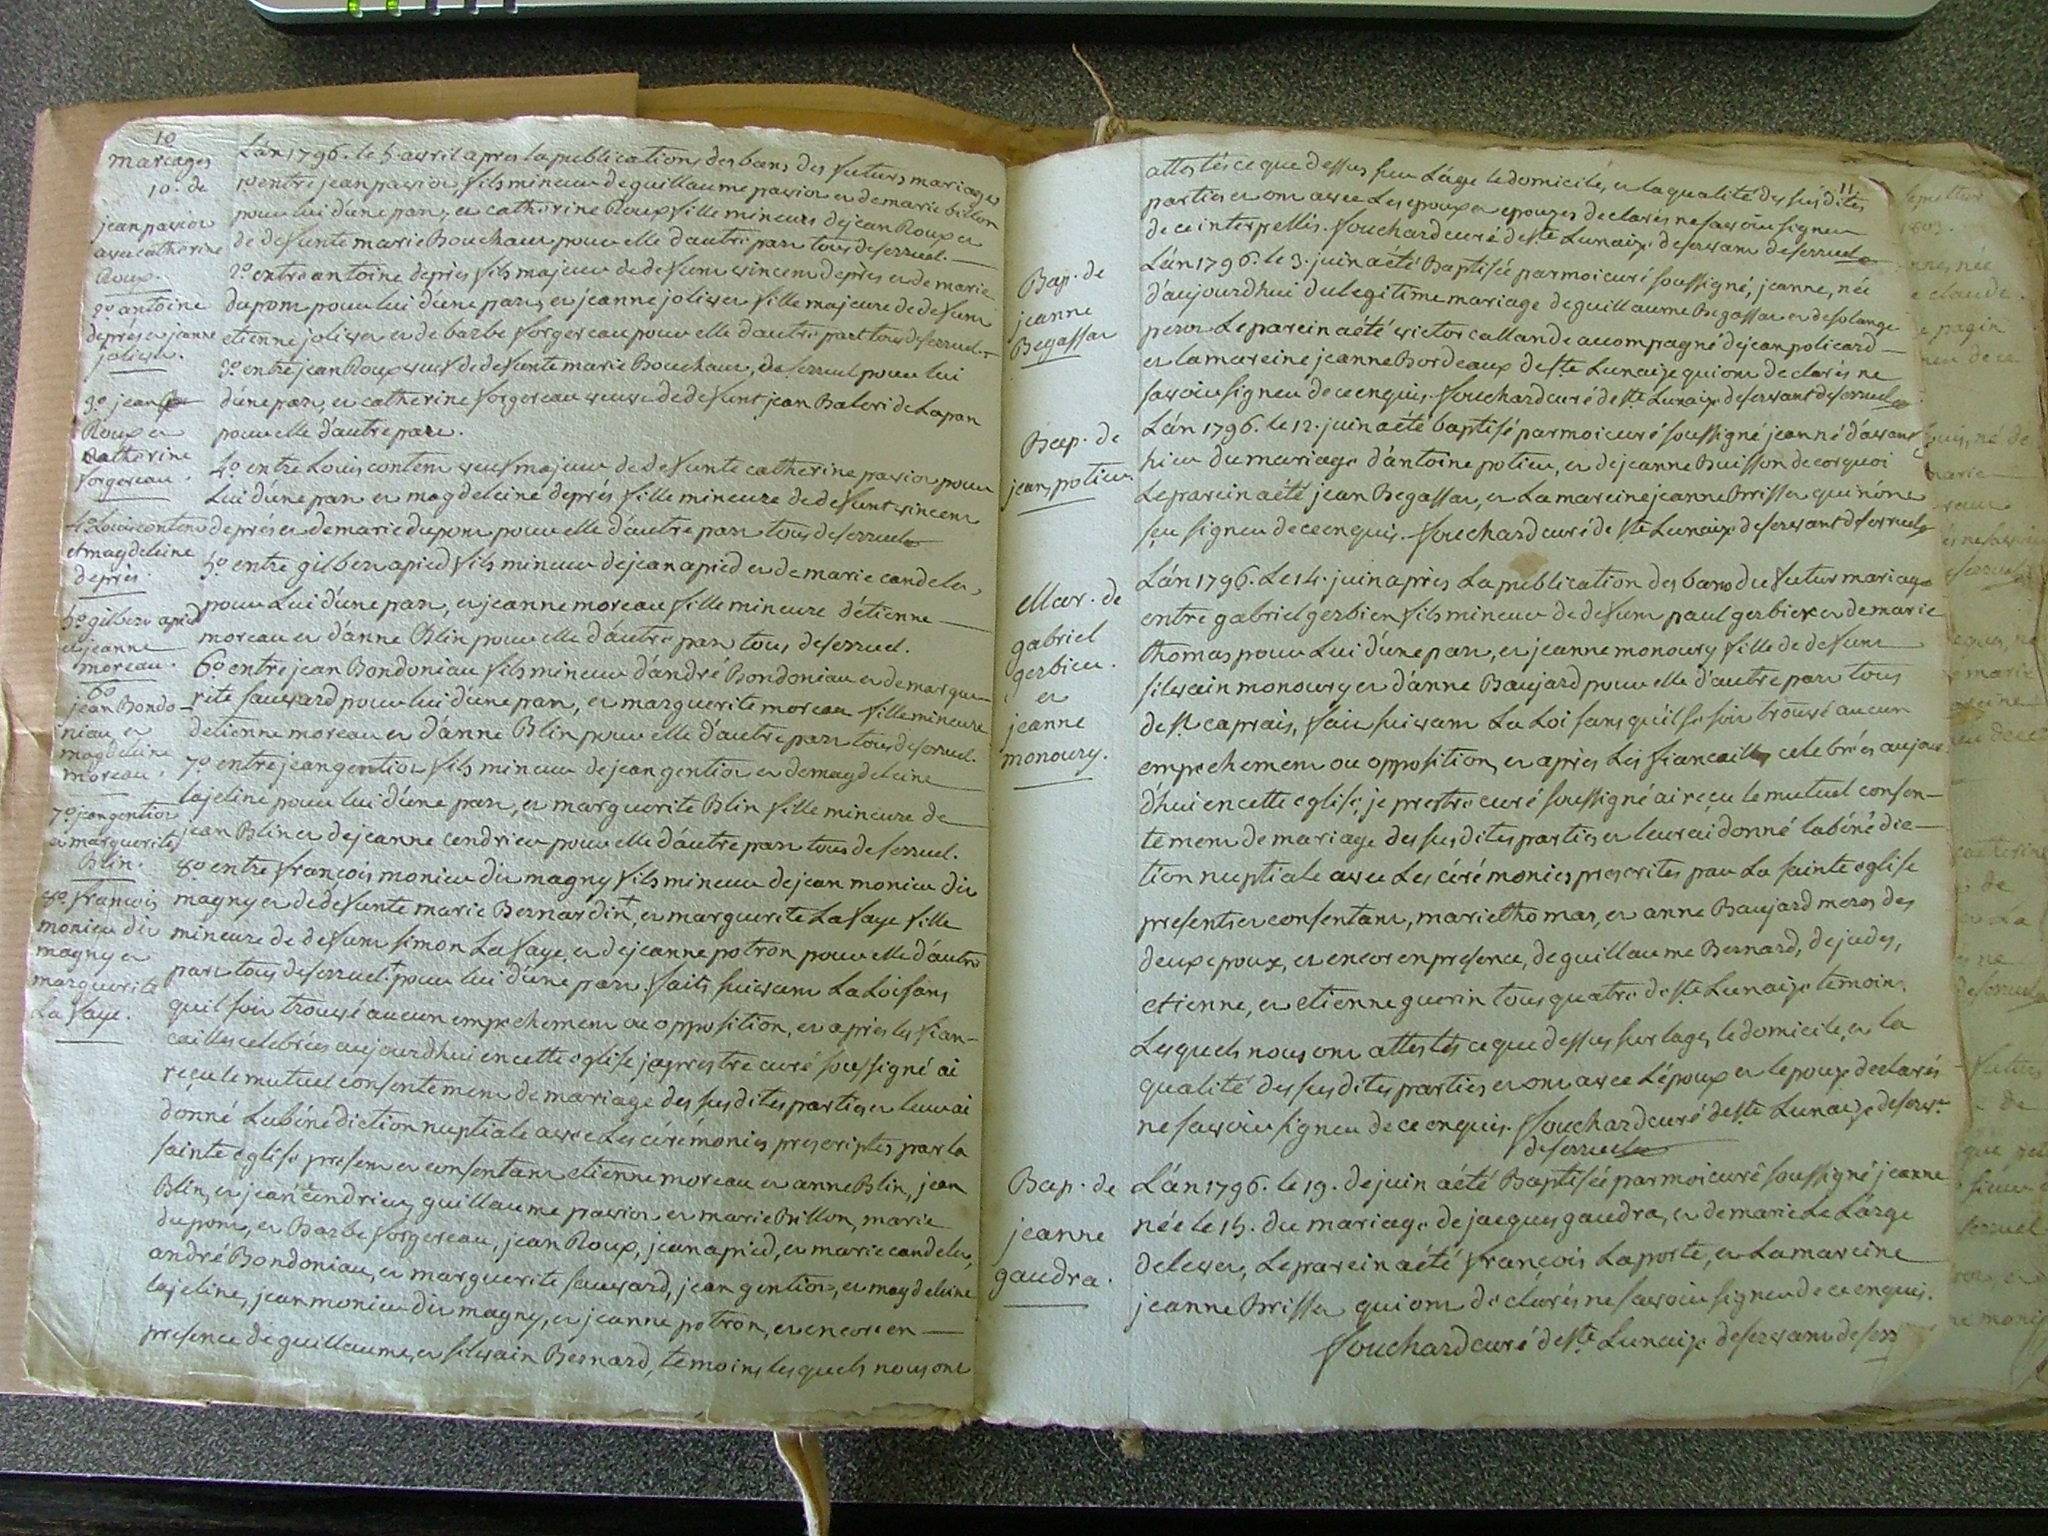 10
mariages
10. de
jean pavior
avec catherine
Roux.
2o antoine
deprés er jeanne
joliver.
3o jean
Roux er
catherine
forgereau.
4o Louis contem
et magdeleine
deprés.
5o gilber apied
et jeanne
moreau.
6o
jean Bondo-
niau er
magdeleine
moreau.
7o jean gentior
er marguerite
Blin.
8o francois
monieu dir
magny er
marguerite
La faye.
Lán 1796. le 5 avril apres la publications des bans des futurs mariages
1o entre jean pavior, fils mineur de guillaume pavior er de marie billon
pour lui d'une par, er catherine Roux fille mineure de jean Roux er
de defunte marie Bouchaur pour elle d'autre par tous de sorruel.
2o entre antoine deprés fils majeur de defunt vincem deprés er de marie
dupom pour lui d'une par, er jeanne joliver fille majeure de defunt
etienne joliver er de barbe forgereau pour elle d'autre part tous de sorruel.
3o entre jean Roux veuf de defunte marie Bouchaur, de sorruel pour lui
d'une par, er catherine forgereau veuve de defunt jean Baleri de Lapan
pour elle d'autre par.
4o entre Louis contem veuf majeur de defunte catherine pavior pour
Lui d'une par er magdeleine deprés fille mineure de defunt vincem
deprés er de marie dupom pour elle d'autre par tous de sorruel
5o entre gilber apied fils mineur de jean apied er de marie candeler,
pour Lui d'une par, er jeanne moreau fille mineure d'étienne
moreau er d'anne Blin pour elle d'autre par tous de sorruel.
6o entre jean Bondoniau fils mineur d'andré Bondoniau er de margue-
rite sauvard pour lui d'une par, er marguerite moreau fille mineure
detienne moreau er d'anne Blin pour elle d'autre par tous de sorruel.
7o entre jean gentior fils mineur de jean gentior er de magdeleine
lajeline pour lui d'une par, er marguerite Blin fille mineure de
jean Blin er de jeanne cendrier pour elle d'autre par tous de sorruel.
8o entre françois monieu dir magny fils mineur de jean monieu dir
magny er de defunte marie Bernardin+, er marguerite La faye fille
mineure de defunt simon La faye, er de jeanne potron pour elle d'autre
par tous de sorruel. +pour lui d'une par. faits suivam La Loi sans
quil soir trouvé aucun empechemem ou opposition, er après les fian-
cailles celebrées aujourdhui en cette eglise je prestre curé soussigné ai
reçu le mutuel consentemem de mariage des susdites parties er leur ai
donné La bénédiction nuptiale avec Les cérémonies prescriptes par la
sainte eglise presem er consentam etienne moreau er anne Blin, jean
Blin, er jean cendrier, guillaume pavior er marie Billon, marie
dupom, er Barbe forgereau, jean Roux, jean apied, er marie candeler,
andré Bondoniau, er marguerite sauvard, jean gentior, er magdeleine
lajeline, jean monieu dir magny, er jeanne potron, er encore en
presence de guillaume, er silvain Bernard, temoins lesquels nous om
11
Bap. de
jeanne
Begassar
Bap. de
jean potieu.
Mar. de
gabriel
gerbieu.
er
jeanne
monoury.
Bap. de
jeanne
gaudra.
attestés ce que dessus sur L'age le domicile, er la qualité des susdites
parties er om avec Les epoux er epouzes declarés ne savoir signer
de ce interpellés. Fouchard curé de Ste Lunaize desservam de sorruel
Lán 1796. le 3. juin a été Baptisée par moi curé soussigné, jeanne, née
d'aujourdhui du legitime mariage de guillaume Begassar er de solange
peror Le parein a été victor callande accompagné de jean policard
er la mareine jeanne Bordeaux de Ste Lunaize qui om declarés ne
savoir signer de ce enquis. Fouchard curé de Ste Lunaize desservant de sorruel
Lán 1796. le 12. juin a été baptisé par moi curé soussigné jean né d'avant
hier du mariage d'antoine potieu, er de jeanne Buisson de corquoi
Le parein a été jean Begassar, er La mareine jeanne Brisser qui n'one
seu signer de ce enquis. Fouchard curé de Ste Lunaize desservant de sorruel
Lán 1796. Le 14. juin après La publication des bans du futur mariage
entre gabriel gerbieu fils mineur de defunt paul gerbier er de marie
thomas pour Lui d'une par, er jeanne monoury fille de defunt
silvain monoury er d'anne Baujard pour elle d'autre par tous
de St. caprais, fair suivam La Loi sans qu'il se soir trouvé aucun
empechemem ou opposition, er après Les fiancailles celebrées aujour
d'hui en cette eglise, je prestre curé soussigné ai reçu le mutuel consen-
temem de mariage des susdites parties er leur ai donné la bénédic-
tion nuptiale avec Les cérémonies prescrites par La sainte eglise
presents er consentam, marie thomas, er anne Baujard meres des
deux epoux, er encor en presence, de guillaume Bernard, de judes,
etienne, er etienne guerin tous quatre de Ste Lunaize temoins
Lesquels nous om attestés ce que dessus sur lage, le domicile, er la
qualité des susdites parties er om avec L'époux er lepouze declarés
ne savoir signer de ce enquis. Fouchard curé de Ste Lunaize deserv.t
de sorruel
Lán 1796. le 19. de juin a été Baptisée par moi curé soussigné jeanne
née le 15. du mariage de jacques gaudra, er de marie Le Lárge
de lever, Le parein a été françois Laporte, er La mareine
jeanne Brisser qui om déclarés ne savoir signer de ce enquis.
Fouchard curé de Ste Lunaize desservam de sorr